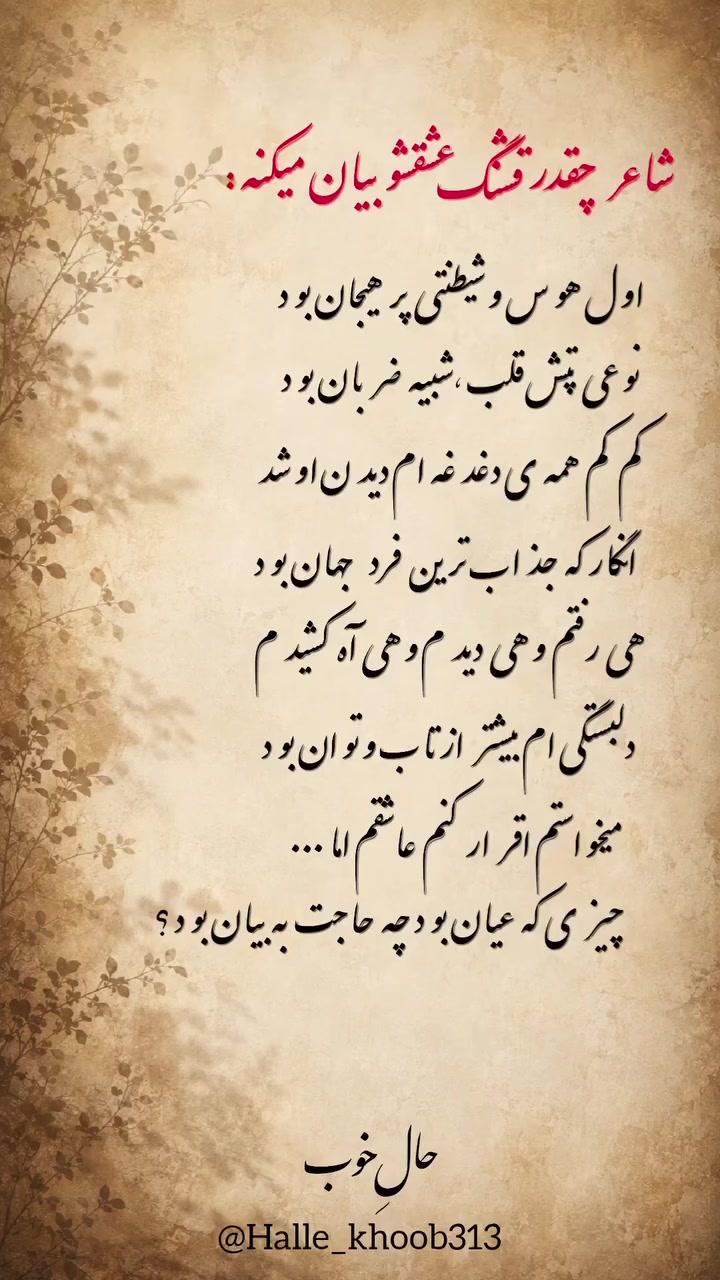 شاعر چقدر قشنگ عشقشو بیان میکنه:
اول هوس و شیطنتی پر هیجان بود
نوعی تپش قلب، شبیه ضربان بود
کم کم همه ی دغدغه ام دیدن او شد
انگار که جذاب ترین فرد جهان بود
هی رفتم و هی دیدم و هی آه کشیدم
دلبستگی ام بیشتر از تاب و توان بود
میخواستم اقرار کنم عاشقم اما ...
چیزی که عیان بود چه حاجت به بیان بود؟
حالِ خوب
@Halle_khoob313